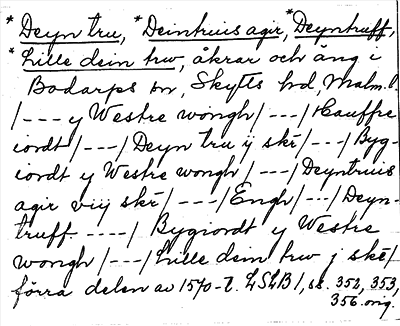 *Deyn tru, *Deintruis agir, *Deyntruff,
*Lille dein trw, åkrar och äng i
Bodarps sn, Skytts hd, Malm. l.
/---y Westre wongh/---/Hauffre
iordt/---/Deyn tru ÿ skr/---/Byg-
iordt y Westre wongh/---/Deyntruis
agir viij skr/---/Engh/---/Deyn-
truff ----/ Bygiordt y Westre
wongh/---/Lille dein trw j skr/
förra delen av 1570-t. LSLB1, ss. 352, 353,
356. orig.